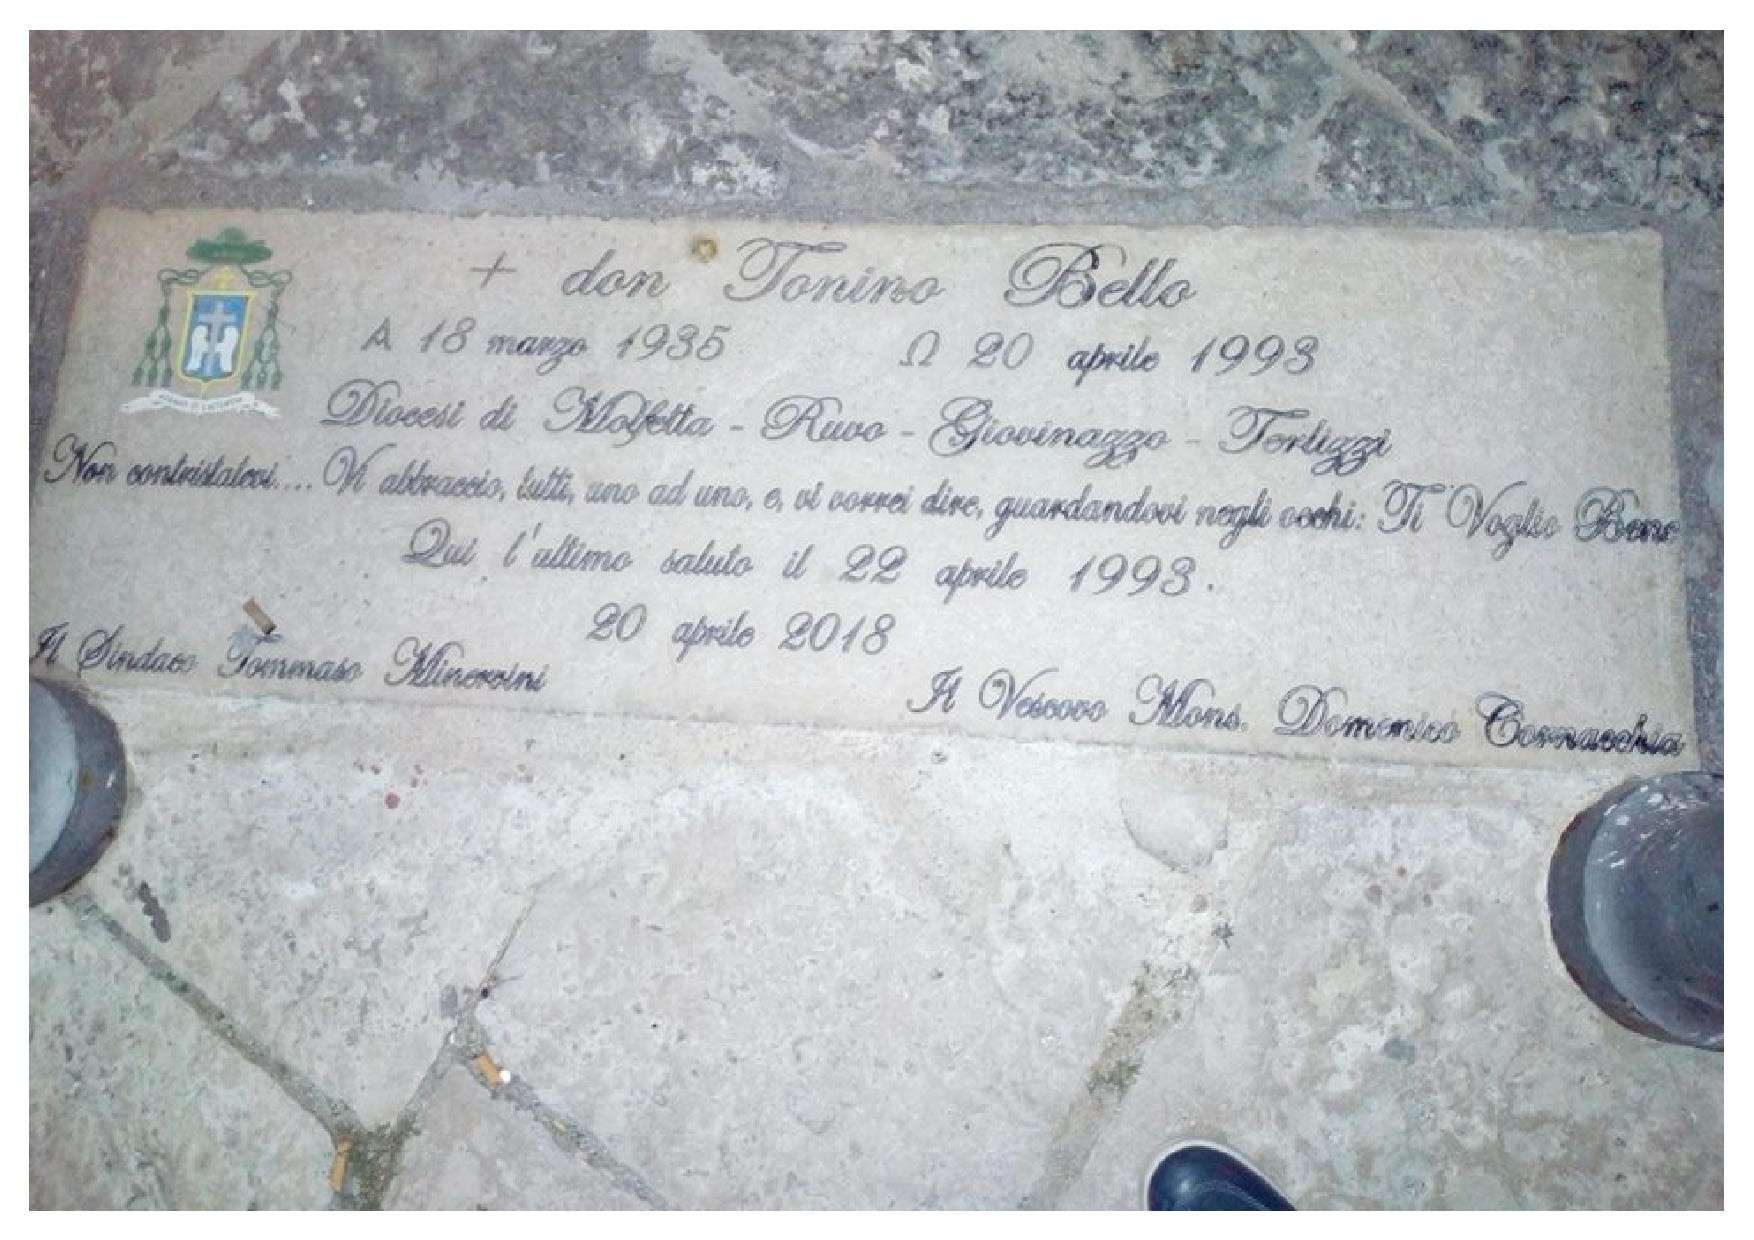 + don Tonino Bello
A 18 marzo 1935 Ω 20 aprile 1993
Diocesi di Molfetta - Ruvo - Giovinazzo - Terlizzi
Non contristatevi.... Vi abbraccio, tutti, uno ad uno, e, vi vorrei dire, guardandovi negli occhi: Ti Voglio Bene
Qui l'ultimo saluto il 22 aprile 1993.
20 aprile 2018
Il Sindaco Tommaso Minervini
Il Vescovo Mons. Domenico Cornacchia